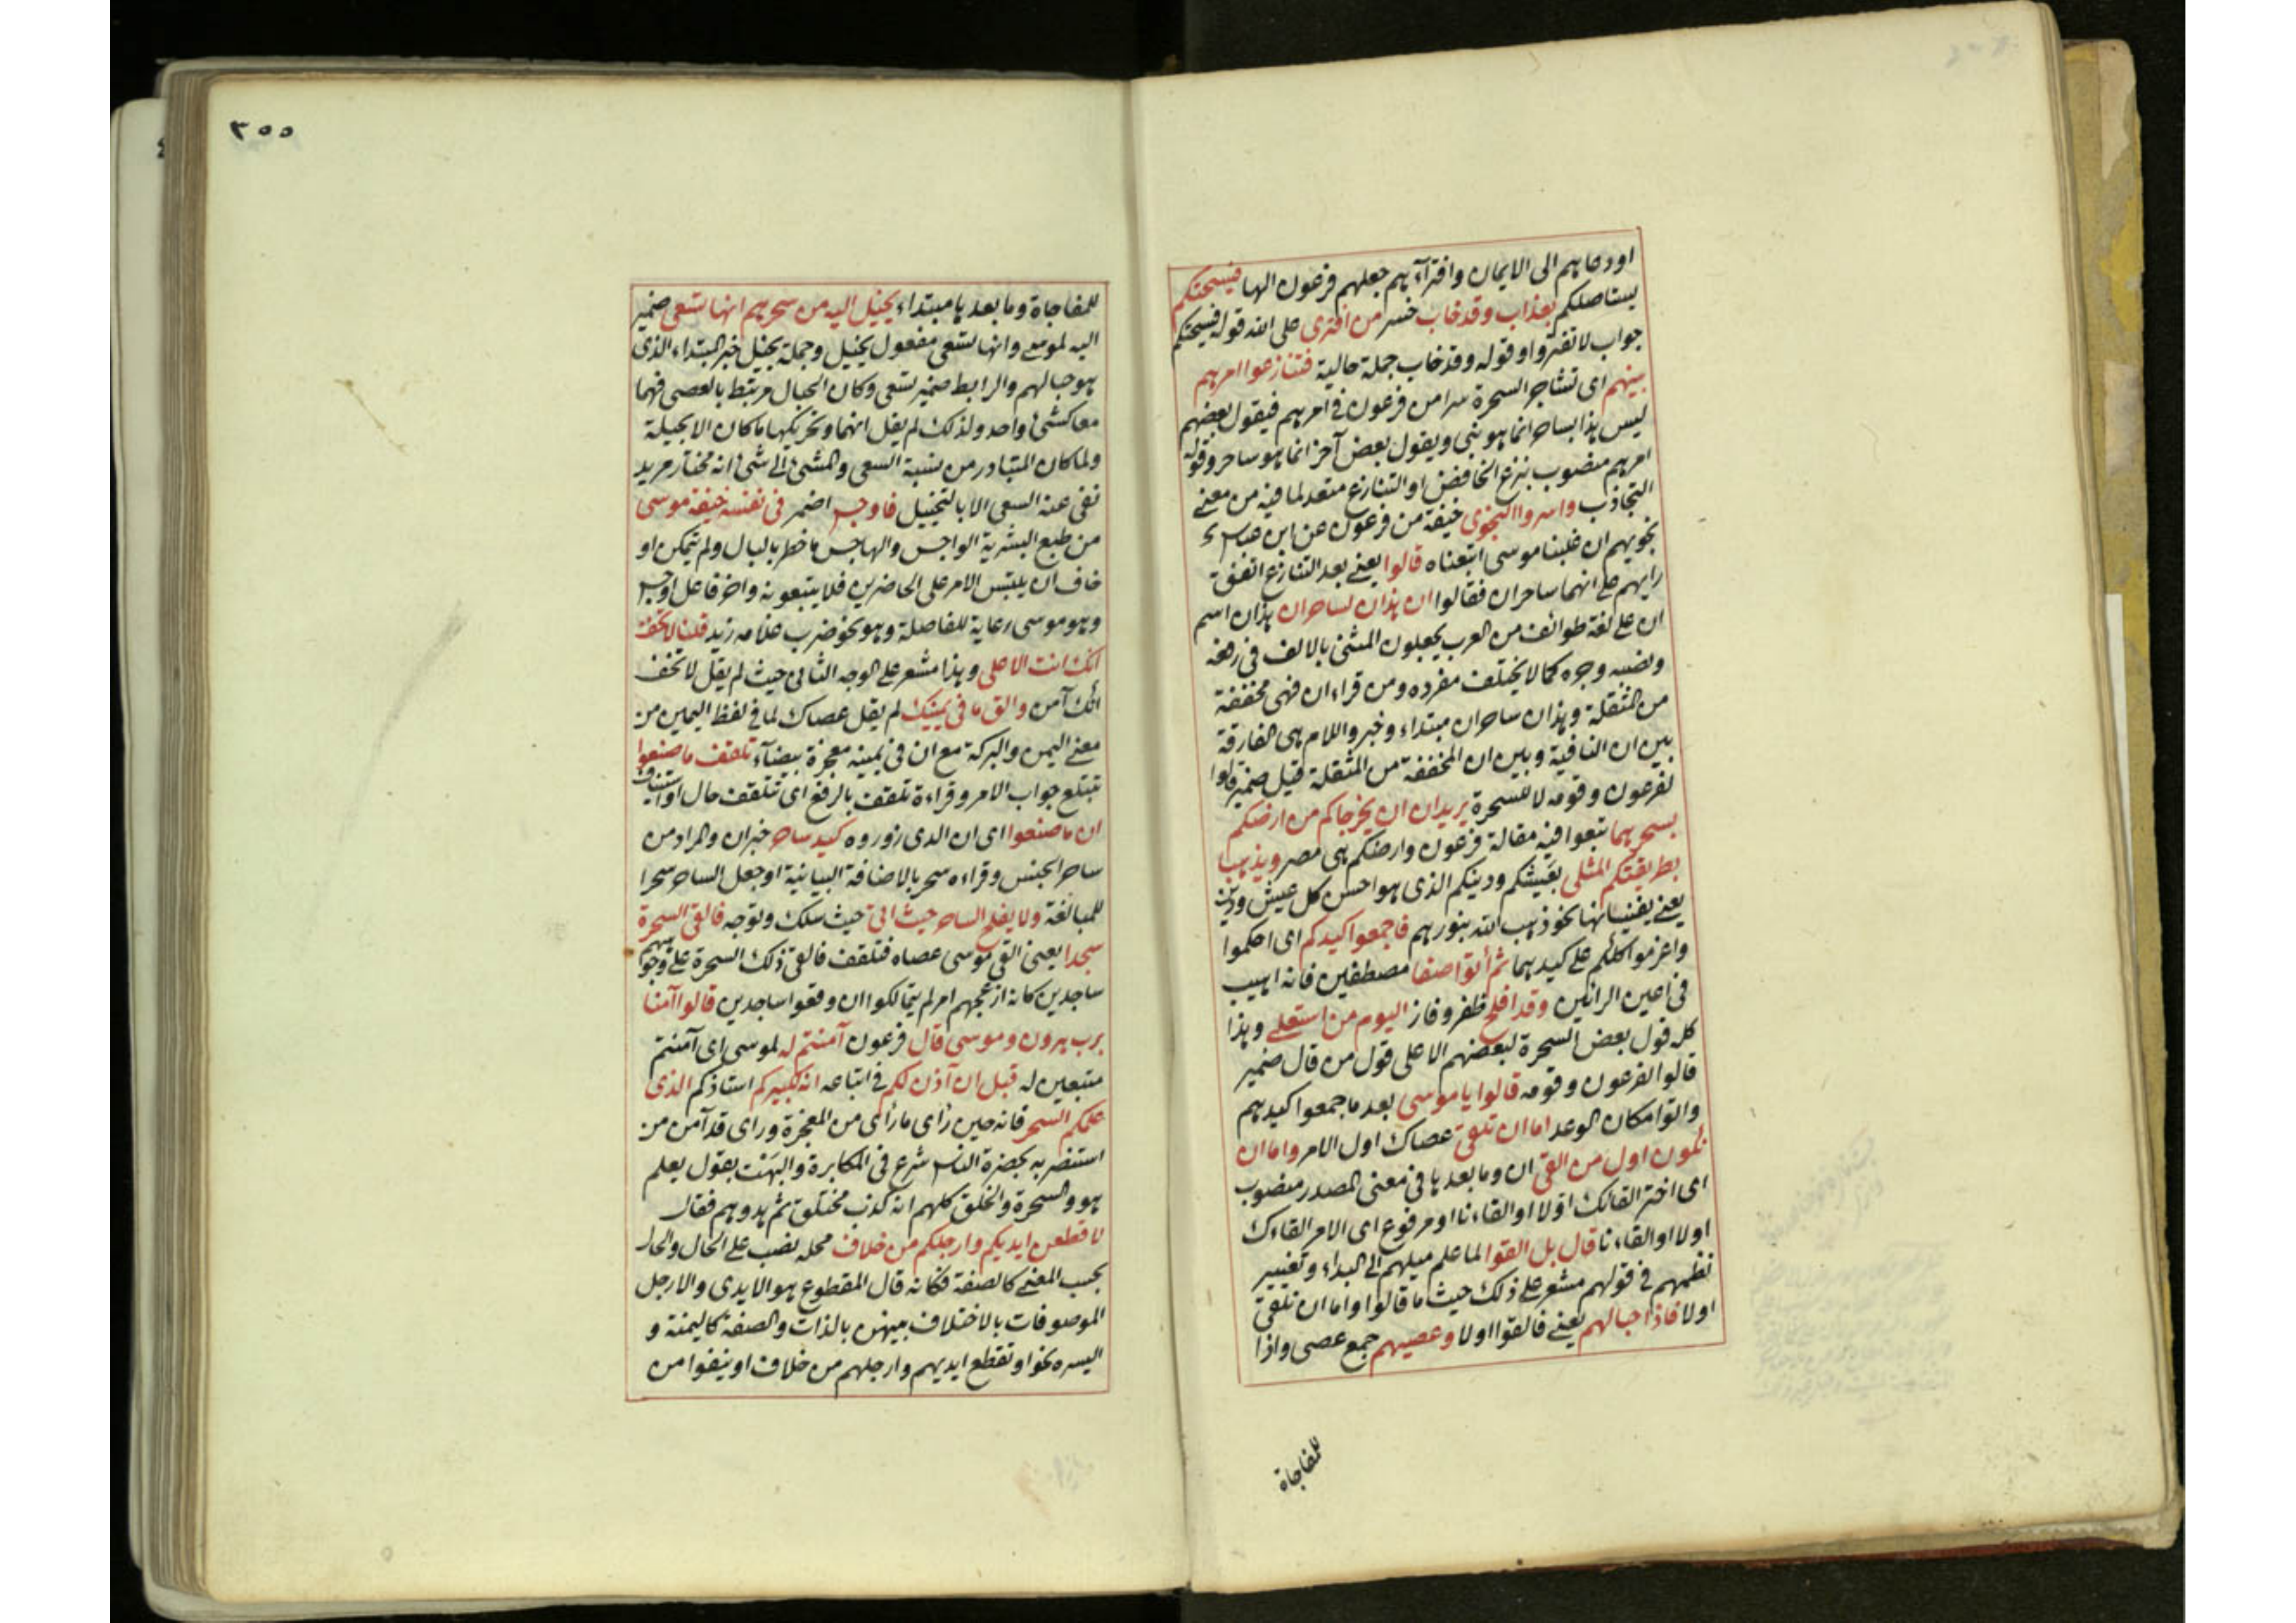 او دعاهم الى الايمان وافتراآهم جعلهم فرعون الها فيسحتكم
يستاصلكم بعذاب وقد خاب خسر من افترى على الله قوله فيسحتكم
جواب لا تفتروا وقوله وقد خاب جملة حالية فتنازعوا امرهم
بينهم اى تشاجر السحرة سرا من فرعون فى امرهم فيقول بعضهم
ليس هذا بساحر انما هو نبى ويقول بعض آخر انما هو ساحر وقوله
امرهم منصوب بنزع الخافض او التنازع متعد لما فيه من معنى
التجاذب واسروا النجوى خيفة من فرعون عن ابن عباس
نجويهم ان غلبنا موسى اتبعناه قالوا يعنى بعد التنازع اتفق
رايهم على انهما ساحران فقالوا ان هذان لساحران هذان اسم
ان على لغة طوائف من العرب يجعلون المثنى بالالف فى رفعه
ونصبه وجره كما لا يختلف مفرده ومن قراء ان فهى مخففة
من المثقلة وهذان ساحران مبتداء وخبر واللام هى الفارقة
بين ان النافية وبين ان المخففة من المثقلة قيل ضمير قالوا
لفرعون وقومه لا للسحرة يريدان ان يخرجاكم من ارضكم
بسحرهما تبعوا فيه مقالة فرعون وارضكم هى مصر ويذهبا
بطريقتكم المثلى بعيشكم ودينكم الذى هو احسن كل عيش ودين
يعنى يفنيانها نحو ذهب الله بنورهم فاجمعوا كيدكم اى احكموا
واعزموا كلكم على كيدهما ثم أتوا صفا مصطفين فانه اهيب
فى اعين الرائين وقد افلح ظفر وفاز اليوم من استعلى وهذا
كله قول بعض السحرة لبعضهم الا على قول من قال ضمير
قالوا لفرعون وقومه قالوا يا موسى بعد ما جمعوا كيدهم
واتوا مكان الوعد اما ان تلقى عصاك اول الامر واما ان
نكون اول من القى ان وما بعدها فى معنى المصدر منصوب
اى اختر القائك اولا او القاءنا او مرفوع اى الامر القاءك
اولا او القاءنا قال بل القوا لما علم ميلهم الى البداء وتغيير
نظمهم فى قولهم مشعر على ذلك حيث ما قالوا واما ان نلقى
اولا فاذا حبالهم يعنى فالقوا اولا وعصيهم جمع عصى واذا
للمفاجاة
٣٥٥
للمفاجاة وما بعدها مبتداء يخيل اليه من سحرهم انها تسعى ضمير
اليه لموسى وانها تسعى مفعول يخيل وجملة يخيل خبر المبتداء الذى
هو حبالهم والرابط ضمير تسعى وكان الحبال مرتبط بالعصى فهما
معا كشئ واحد ولذلك لم يقل انهما وتحريكها ما كان الا بحيلة
ولما كان المتبادر من نسبة السعى والمشى الى شئ انه مختار مريد
نفى عنه السعى الا بالتخييل فاوجس اضمر فى نفسه خيفة موسى
من طبع البشرية الواجس والهاجس ما خطر بالبال ولم يتمكن او
خاف ان يلتبس الامر على الحاضرين فلا يتبعونه واخر فاعل اوجس
وهو موسى رعاية للفاصلة وهو نحو ضرب غلامه زيد قلنا لا تخف
انك انت الاعلى وهذا مشعر على الوجه الثانى حيث لم يقل لا تخف
انك آمن والق ما فى يمينك لم يقل عصاك لما فى لفظ اليمين من
معنى اليمن والبركة مع ان فى يمينه معجزة بيضاء تلقف ما صنعوا
تبتلع جواب الامر وقراءة تلقف بالرفع اى تتلقف حال او استيناف
ان ما صنعوا اى ان الذى زوروه كيد ساحر خبر ان والمراد من
ساحر الجنس وقراءه سحر بالاضافة البيانية او جعل الساحر سحرا
للمبالغة ولا يفلح الساحر حيث اتى حيث سلك وتوجه فالقى السحرة
سجدا يعنى القى موسى عصاه فتلقف فالقى ذلك السحرة على وجوههم
ساجدين كانه ازعجهم امر لم يتمالكوا ان وقعوا ساجدين قالوا آمنا
برب هرون وموسى قال فرعون آمنتم له لموسى اى آمنتم
متبعين له قبل ان آذن لكم فى اتباعه انه لكبيركم استاذكم الذى
علمكم السحر فانه حين رأى ما رأى من المعجزة وراى قد آمن من
استنصر به بحضرة الناس شرع فى المكابرة والبهت بقول يعلم
هو والسحرة والخلق كلهم انه كذب مختلق ثم هددهم فقال
لا قطعن ايديكم وارجلكم من خلاف محله نصب على الحال والحال
بحسب المعنى كالصفة فكانه قال المقطوع هو الايدى والارجل
الموصوفات بالاختلاف بينهن بالذات والصفة كاليمنة و
اليسره نحو او تقطع ايديهم وارجلهم من خلاف او ينفوا من